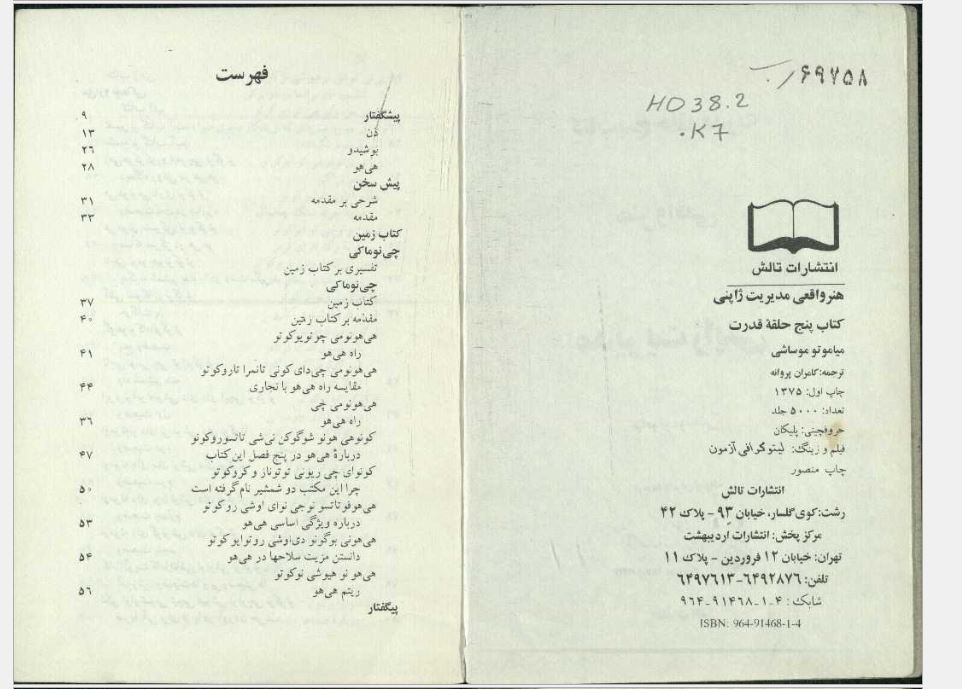 ۶۹۷۵۸
HD38.2
.K7
انتشارات تالش
هنر واقعی مدیریت ژاپنی
کتاب پنج حلقهٔ قدرت
میاموتو موساشی
ترجمه: کامران پروانه
چاپ اول: ۱۳۷۵
تعداد: ۵۰۰۰ جلد
حروفچینی: پلیکان
فیلم و زینگ: لیتوگرافی آزمون
چاپ منصور
انتشارات تالش
رشت: کوی گلسار، خیابان ۹۳ - پلاک ۴۲
مرکز پخش: انتشارات اردیبهشت
تهران: خیابان ۱۲ فروردین - پلاک ۱۱
تلفن: ۶۴۹۲۸۷۶-۶۴۹۷۶۱۳
شابک: ۴-۱-۹۱۴۶۸-۹۶۴
ISBN: 964-91468-1-4
فهرست
پیشگفتار ۹
ذن ۱۳
بوشیدو ۲۶
هی‌هو ۲۸
پیش سخن
شرحی بر مقدمه ۳۱
مقدمه ۳۳
کتاب زمین
چی‌نوماکی
تفسیری بر کتاب زمین
چی‌نوماکی
کتاب زمین ۳۷
مقدمه بر کتاب زمین ۴۰
هی‌هونومی چوتویوکوتو
راه هی‌هو ۴۱
هی‌هونومی چی‌دای کونی تاتمرا تاروکوتو
مقایسه راه هی‌هو با نجاری ۴۴
هی‌هونومی چی
راه هی‌هو ۳۶
کونوهی هونو شوگوکن نی‌شی تاتسوروکونو
دربارهٔ هی‌هو در پنج فصل این کتاب ۴۷
کونوای چی ریونی توتوناز و کروکوتو
چرا این مکتب دو شمشیر نام گرفته است ۵۰
هی‌هوفوتاتسو نوجی نوای اوشی روکوتو
درباره ویژگی اساسی هی‌هو ۵۳
هی‌هونی بوگونو دی‌اوشی روتوایوکوتو
دانستن مزیت سلاحها در هی‌هو ۵۴
هی‌هو نو هیوشی نوکوتو
ریتم هی‌هو ۵۶
پیگفتار